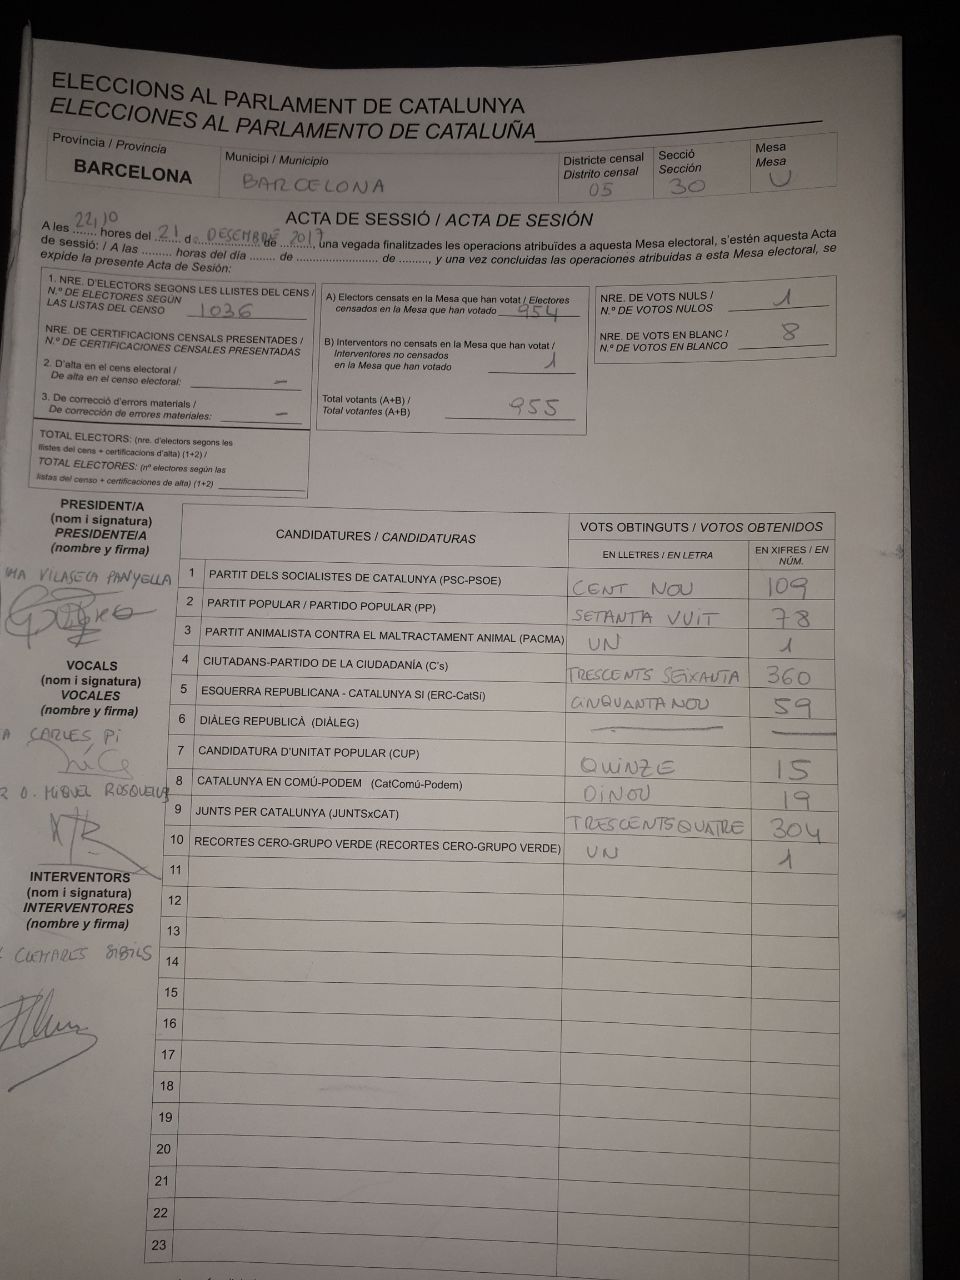 ELECCIONS AL PARLAMENT DE CATALUNYA
ELECCIONES AL PARLAMENTO DE CATALUÑA
Provincia / Provincia
BARCELONA
Municipi / Municipio
BARCELONA
Districte censal
Distrito censal
05
Secció
Sección
30
Mesa
Mesa
U
ACTA DE SESSIÓ / ACTA DE SESIÓN
A les 22,10 hores del 21 d DESEMBRE de 2017, una vegada finalitzades les operacions atribuïdes a aquesta Mesa electoral, s'estén aquesta Acta
de sessió: / A las ......... horas del día ........ de ......................... de ........., y una vez concluidas las operaciones atribuidas a esta Mesa electoral, se
expide la presente Acta de Sesión:
1. NRE. D'ELECTORS SEGONS LES LLISTES DEL CENS /
N.º DE ELECTORES SEGÚN
LAS LISTAS DEL CENSO 1036
NRE. DE CERTIFICACIONS CENSALS PRESENTADES /
N.º DE CERTIFICACIONES CENSALES PRESENTADAS
2. D'alta en el cens electoral /
De alta en el censo electoral: –
3. De correcció d'errors materials /
De corrección de errores materiales: –
TOTAL ELECTORS: (nre. d'electors segons les
llistes del cens + certificacions d'alta) (1+2) /
TOTAL ELECTORES: (nº electores según las
listas del censo + certificaciones de alta) (1+2)
A) Electors censats en la Mesa que han votat / Electores
censados en la Mesa que han votado 954
B) Interventors no censats en la Mesa que han votat /
Interventores no censados
en la Mesa que han votado 1
Total votants (A+B) /
Total votantes (A+B) 955
NRE. DE VOTS NULS /
N.º DE VOTOS NULOS 1
NRE. DE VOTS EN BLANC /
N.º DE VOTOS EN BLANCO 8
PRESIDENT/A
(nom i signatura)
PRESIDENTE/A
(nombre y firma)
VILASECA PANYELLA
VOCALS
(nom i signatura)
VOCALES
(nombre y firma)
CARLES Pi
MIQUEL
INTERVENTORS
(nom i signatura)
INTERVENTORES
(nombre y firma)
CANDIDATURES / CANDIDATURAS
VOTS OBTINGUTS / VOTOS OBTENIDOS
EN LLETRES / EN LETRA
EN XIFRES / EN
NÚM.
1 PARTIT DELS SOCIALISTES DE CATALUNYA (PSC-PSOE) CENT NOU 109
2 PARTIT POPULAR / PARTIDO POPULAR (PP) SETANTA VUIT 78
3 PARTIT ANIMALISTA CONTRA EL MALTRACTAMENT ANIMAL (PACMA) UN 1
4 CIUTADANS-PARTIDO DE LA CIUDADANÍA (C's) TRESCENTS SEIXANTA 360
5 ESQUERRA REPUBLICANA - CATALUNYA SI (ERC-CatSí) CINQUANTA NOU 59
6 DIÀLEG REPUBLICÀ (DIÀLEG)
7 CANDIDATURA D'UNITAT POPULAR (CUP) QUINZE 15
8 CATALUNYA EN COMÚ-PODEM (CatComú-Podem) DINOU 19
9 JUNTS PER CATALUNYA (JUNTSxCAT) TRESCENTS QUATRE 304
10 RECORTES CERO-GRUPO VERDE (RECORTES CERO-GRUPO VERDE) UN 1
11
12
13
14
15
16
17
18
19
20
21
22
23